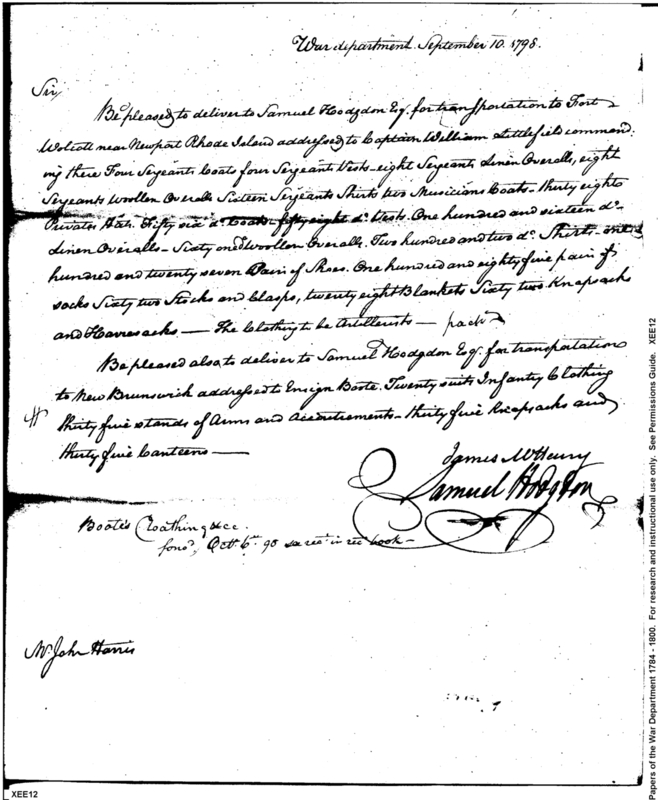 War department September 10. 1798.
Sir
Be pleased to deliver to Samuel Hodgdon Esq. for transportation to Fort
Wolcott near Newport Rhode Island addressed to Captain William Littlefield command-
ing there Four Sergeants Coats four Sergeants Vests - eight Sergeants Linen Overalls, eight
Sergeants Woollen Overalls Sixteen Sergeants Shirts two Musicians Coats - thirty eight
Privates Hats. Fifty six do. Coats - fifty eight do. Vests. One hundred and sixteen do.
Linen Overalls - Sixty one do woollen Overalls. Two hundred and two do. Shirts - one
hundred and twenty seven Pair of Shoes. One hundred and eighty five pair of
socks Sixty two Stocks and Clasps, twenty eight Blankets Sixty two Knapsacks
and Haversacks - The Clothing to be Artillerists - pack'd
Be pleased also to deliver to Samuel Hodgdon Esq. for transportation
to New Brunswick addressed to Ensign Boote. Twenty suits Infantry Clothing
# thirty five stands of Arms and Accoutrements - thirty five Knapsacks and
thirty five Canteens -
James McHenry
Samuel Hodgdon
Boote's Cloathing &cc.
Octr. 6th. 98 rect. in rect. book -
Mr John Harris
XEE12
Papers of the War Department 1784 - 1800. For research and instructional use only. See Permissions Guide. XEE12